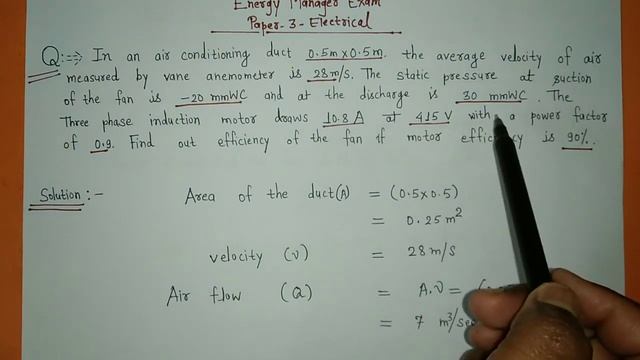 Energy Manager Exam
Paper-3-Electrical
Q:⇒ In an air conditioning duct 0.5m x 0.5m. the average velocity of air
measured by vane anemometer is 28m/s. The static pressure at suction
of the fan is -20 mmWC and at the discharge is 30 mmWC. The
Three phase induction motor draws 10.8 A at 415 V with a power factor
of 0.9. Find out efficiency of the fan if motor efficiency is 90%.
Solution:- Area of the duct(A) = (0.5x0.5)
= 0.25 m²
velocity (v) = 28 m/s
Air flow (Q) = A.v =
= 7 m³/sec